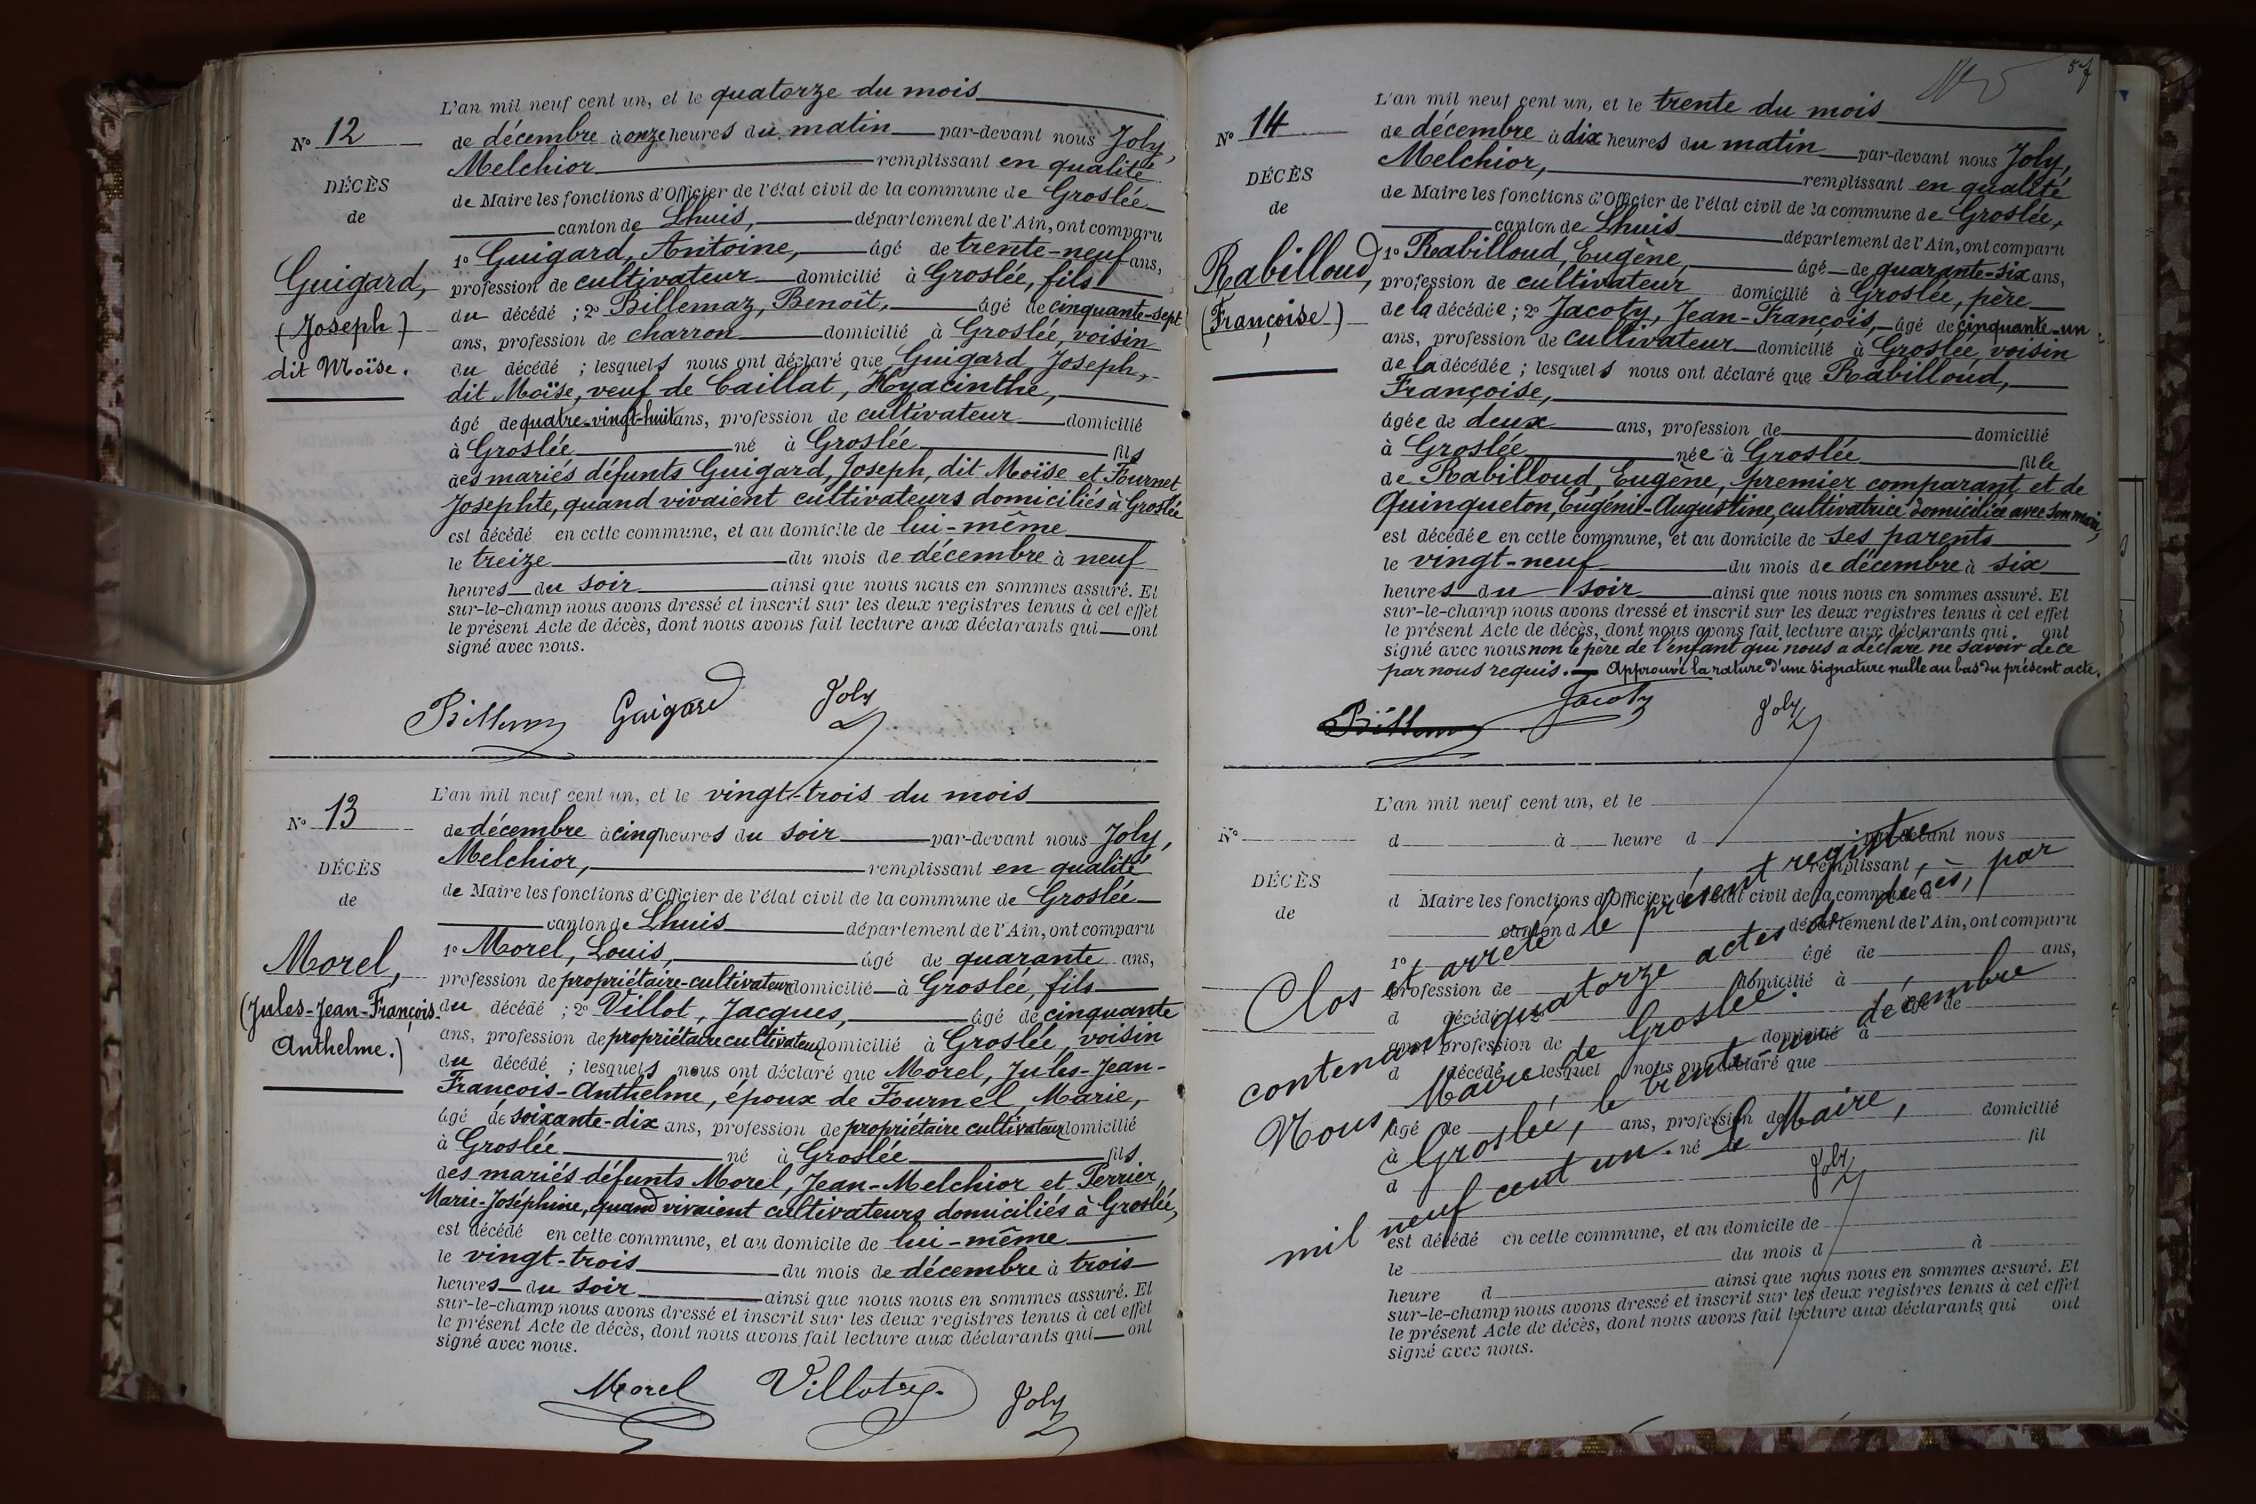 L'an mil neuf cent un, et le quatorze du mois
No 12
de décembre à onze heures du matin par-devant nous Joly,
Melchior remplissant en qualité
DÉCÈS
de Maire les fonctions d'Officier de l'état civil de la commune de Groslée
de
canton de Lhuis, département de l'Ain, ont comparu
1o Guigard, Antoine, âgé de trente-neuf ans,
Guigard,
profession de cultivateur domicilié à Groslée, fils
du décédé ; 2o Billemaz, Benoît, âgé de cinquante-sept
(Joseph)
ans, profession de charron domicilié à Groslée, voisin
dit Moïse.
du décédé ; lesquels nous ont déclaré que Guigard Joseph,
dit Moïse, veuf de Caillat, Hyacinthe,
âgé de quatre-vingt-huit ans, profession de cultivateur domicilié
à Groslée né à Groslée fils
des mariés défunts Guigard, Joseph, dit Moïse et Fournet
Josephte, quand vivaient cultivateurs domiciliés à Groslée
est décédé en cette commune, et au domicile de lui-même
le treize du mois de décembre à neuf
heures du soir ainsi que nous nous en sommes assuré. Et
sur-le-champ nous avons dressé et inscrit sur les deux registres tenus à cet effet
le présent Acte de décès, dont nous avons fait lecture aux déclarants qui ont
signé avec nous.
Guigard Joly
L'an mil neuf cent un, et le vingt-trois du mois
No 13
de décembre à cinq heures du soir par-devant nous Joly,
Melchior, remplissant en qualité
DÉCÈS
de Maire les fonctions d'Officier de l'état civil de la commune de Groslée
de
canton de Lhuis département de l'Ain, ont comparu
1o Morel, Louis, âgé de quarante ans,
Morel,
profession de propriétaire-cultivateur domicilié à Groslée, fils
(Jules-Jean-François-
du décédé ; 2o Villot, Jacques, âgé de cinquante
Anthelme.)
ans, profession de propriétaire cultivateur domicilié à Groslée, voisin
du décédé ; lesquels nous ont déclaré que Morel, Jules-Jean-
François-Anthelme, époux de Fournel, Marie,
âgé de soixante-dix ans, profession de propriétaire cultivateur domicilié
à Groslée né à Groslée fils
des mariés défunts Morel, Jean-Melchior et Perrier,
Marie-Joséphine, quand vivaient cultivateurs domiciliés à Groslée,
est décédé en cette commune, et au domicile de lui-même
le vingt-trois du mois de décembre à trois
heures du soir ainsi que nous nous en sommes assuré. Et
sur-le-champ nous avons dressé et inscrit sur les deux registres tenus à cet effet
le présent Acte de décès, dont nous avons fait lecture aux déclarants qui ont
signé avec nous.
Morel Joly
L'an mil neuf cent un, et le trente du mois
No 14
de décembre à dix heures du matin par-devant nous Joly,
Melchior, remplissant en qualité
DÉCÈS
de Maire les fonctions d'Officier de l'état civil de la commune de Groslée,
de
canton de Lhuis département de l'Ain, ont comparu
Rabilloud,
1o Rabilloud, Eugène, âgé de quarante-six ans,
profession de cultivateur domicilié à Groslée, père
(Françoise)
de la décédée ; 2o Jacoty, Jean-François, âgé de cinquante-un
ans, profession de cultivateur domicilié à Groslée, voisin
de la décédée ; lesquels nous ont déclaré que Rabilloud,
Françoise,
âgée de deux ans, profession de domicilié
à Groslée née à Groslée fille
de Rabilloud, Eugène, premier comparant et de
Quinqueton, Eugénie-Augustine, cultivatrice domiciliée avec son mari,
est décédée en cette commune, et au domicile de ses parents
le vingt-neuf du mois de décembre à six
heures du soir ainsi que nous nous en sommes assuré. Et
sur-le-champ nous avons dressé et inscrit sur les deux registres tenus à cet effet
le présent Acte de décès, dont nous avons fait lecture aux déclarants qui ont
signé avec nous non le père de l'enfant qui nous a déclaré ne savoir de ce
par nous requis. Approuvé la rature d'une signature nulle au bas du présent acte.
Jacoty Joly
L'an mil neuf cent un, et le
No
d à heure d par-devant nous
remplissant
DÉCÈS
d Maire les fonctions d'Officier de l'état civil de la commune d
de
canton d département de l'Ain, ont comparu
1o âgé de ans,
profession de domicilié à
d décédé ; 2o âgé de
ans, profession de domicilié à
d décédé ; lesquel nous ont déclaré que
âgé de ans, profession de domicilié
à né à fil
d
est décédé en cette commune, et au domicile de
le du mois d à
heure d ainsi que nous nous en sommes assuré. Et
sur-le-champ nous avons dressé et inscrit sur les deux registres tenus à cet effet
le présent Acte de décès, dont nous avons fait lecture aux déclarants qui ont
signé avec nous.
Clos et arrêté le présent registre
contenant quatorze actes de décès, par
Nous, Maire de Groslée.
à Groslée, le trente-un décembre
mil neuf cent un. Le Maire,
Joly